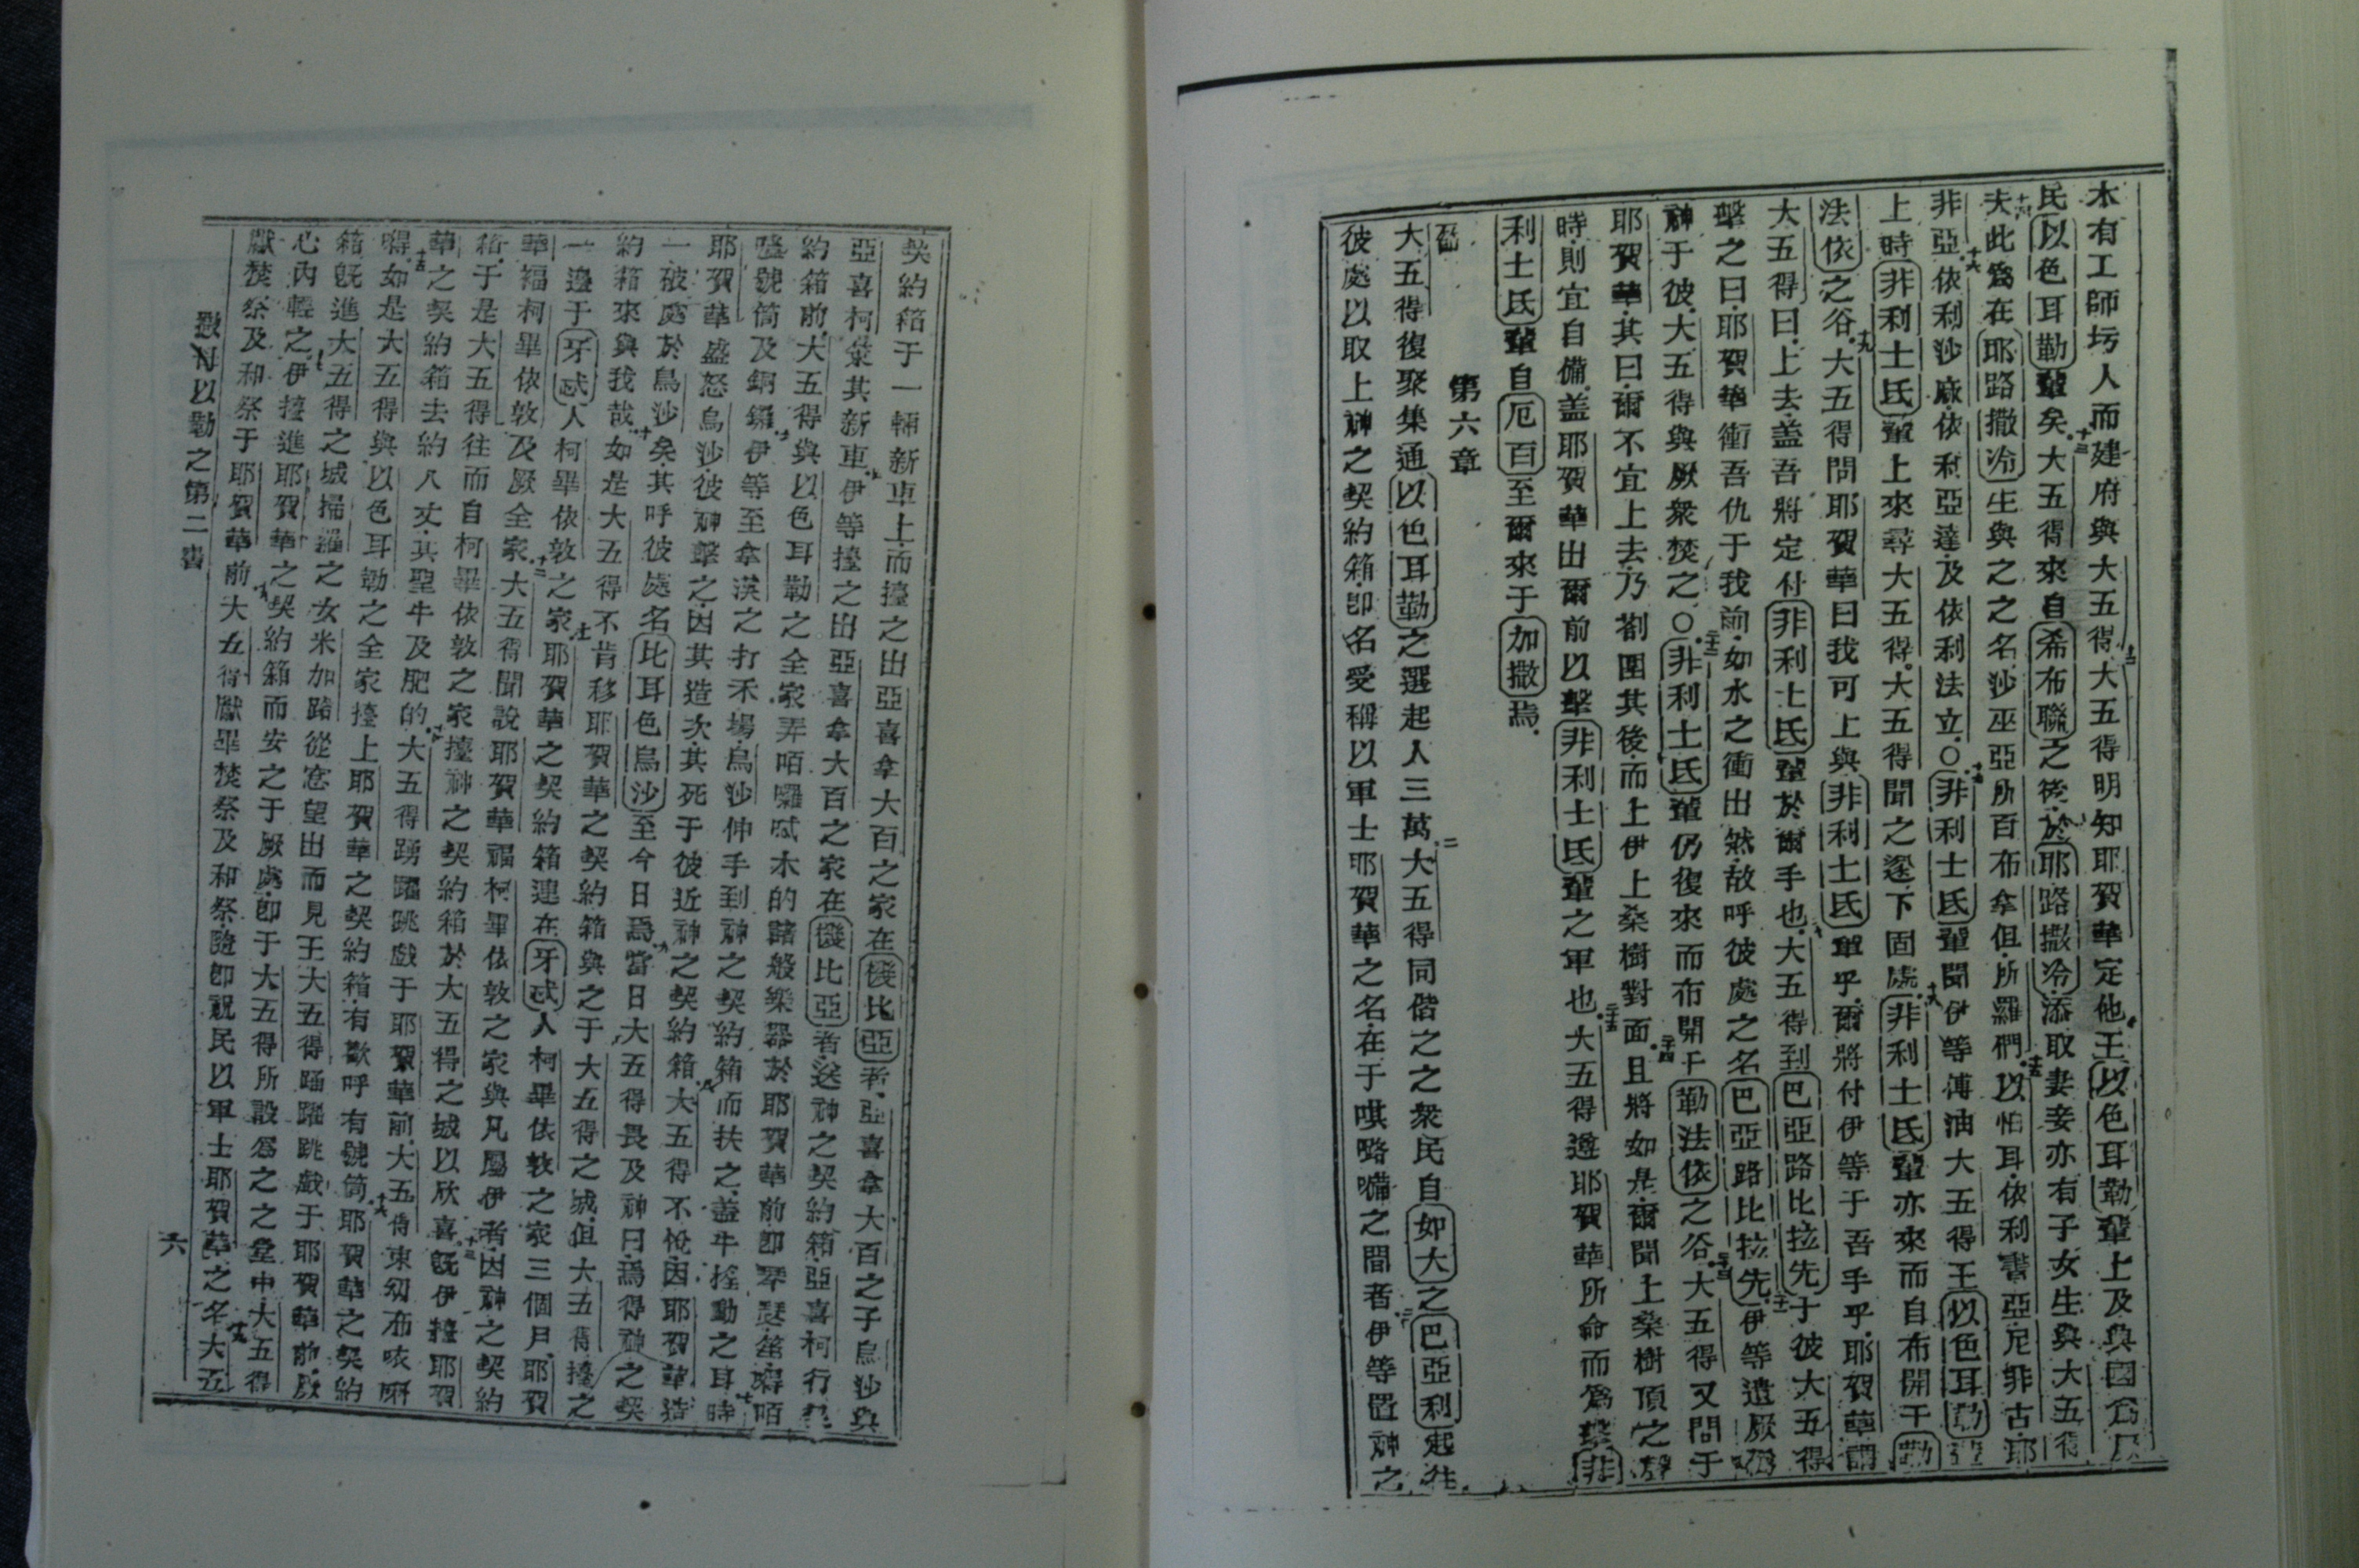 木有工師圬人而建府與大五得十二大五得明知耶賀華定他王以色耳勒輩上及與國爲厥
民以色耳勒輩矣十三大五得來自希布聯之後於耶路撒冷添取妻妾亦有子女生與大五得
十四夫此爲在耶路撒冷生與之之名沙巫亞所百布拿但所羅們十五以怕耳依利書亞尼非古耶
非亞十六依利沙廠依利亞達及依利法立〇十七非利士氏輩聞伊等傅油大五得王以色耳勒
上時非利士氏輩上來尋大五得大五得聞之遂下固處十八非利士氏輩亦來而自布開于勒
法依之谷十九大五得問耶賀華曰我可上與非利士氏輩乎爾將付伊等于吾手乎耶賀華謂
大五得曰上去蓋吾將定付非利士氏輩於爾手也二十大五得到巴亞路比拉先于彼大五得
擊之曰耶賀華衝吾仇于我前如水之衝出然故呼彼處之名巴亞路比拉先二十一伊等遺厥偶
神于彼大五得與厥衆焚之〇二十二非利士氏輩仍復來而布開于勒法依之谷二十三大五得又問于
耶賀華其曰爾不宜上去乃劄圍其後而上伊上桑樹對面二十四且將如是爾聞上桑樹頂之聲
時則宜自備蓋耶賀華出爾前以擊非利士氏輩之軍也二十五大五得遵耶賀華所命而爲擊非
利士氏輩自厄百至爾來于加撒焉
第六章
大五得復聚集通以色耳勒之選起人三萬二大五得同偕之之衆民自如大之巴亞利起往
彼處以取上神之契約箱卽名愛稱以軍士耶賀華之名在于𠵽𠸄𡃤之間者三伊等置神之
契約箱于一輛新車上而擡之出亞喜拿大百之家在機比亞者亞喜拿大百之子烏沙與
亞喜柯彙其新車四伊等擡之出亞喜拿大百之家在機比亞者送神之契約箱亞喜柯行契
約箱前五大五得與以色耳勒之全家弄咟囉㖼木的諸般樂器於耶賀華前卽琴瑟笛𡃤咟
𡃤號筒及銅鑼六伊等至拿漢之打禾場烏沙伸手到神之契約箱而扶之蓋牛搖動之耳七時
耶賀華盛怒烏沙彼神擊之因其造次其死于彼近神之契約箱八大五得不悅因耶賀華造
一破處於烏沙矣其呼彼處名比耳色烏沙至今日焉九當日大五得畏及神曰焉得神之契
約箱來與我哉十如是大五得不肯移耶賀華之契約箱與之于大五得之城但大五得擡之
一邊于牙忒人柯畢依敦之家十一耶賀華之契約箱連在牙忒人柯畢依敦之家三個月耶賀
華福柯畢依敦及厥全家十二大五得聞說耶賀華福柯畢依敦之家與凡屬伊者因神之契約
箱于是大五得往而自柯畢依敦之家擡神之契約箱於大五得之城以欣喜十三旣伊擡耶賀
華之契約箱去約八丈其聖牛及肥的十四大五得踴躍跳戲于耶賀華前大五得束幼布咴𠻗
十五𡃤如是大五得與以色耳勒之全家擡上耶賀華之契約箱有歡呼有號筒十六耶賀華之契約
箱旣進大五得之城掃羅之女米加路從窓望出而見王大五得踊躍跳戲于耶賀華前厥
心內輕之十七伊擡進耶賀華之契約箱而安之于厥處卽于大五得所設爲之之堂中大五得
獻焚祭及和祭于耶賀華前十八大五得獻畢焚祭及和祭隨卽祝民以軍士耶賀華之名十九大五
撒母以勒之第二書
六